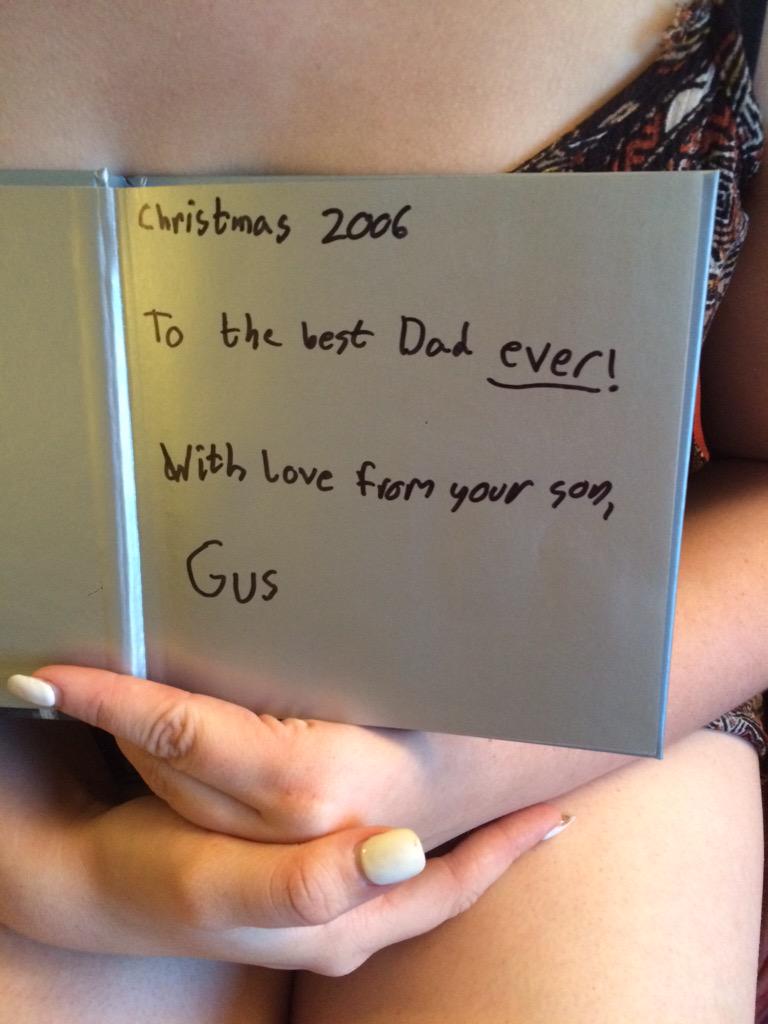 Christmas 2006
To the best Dad ever!
With love from your son,
Gus